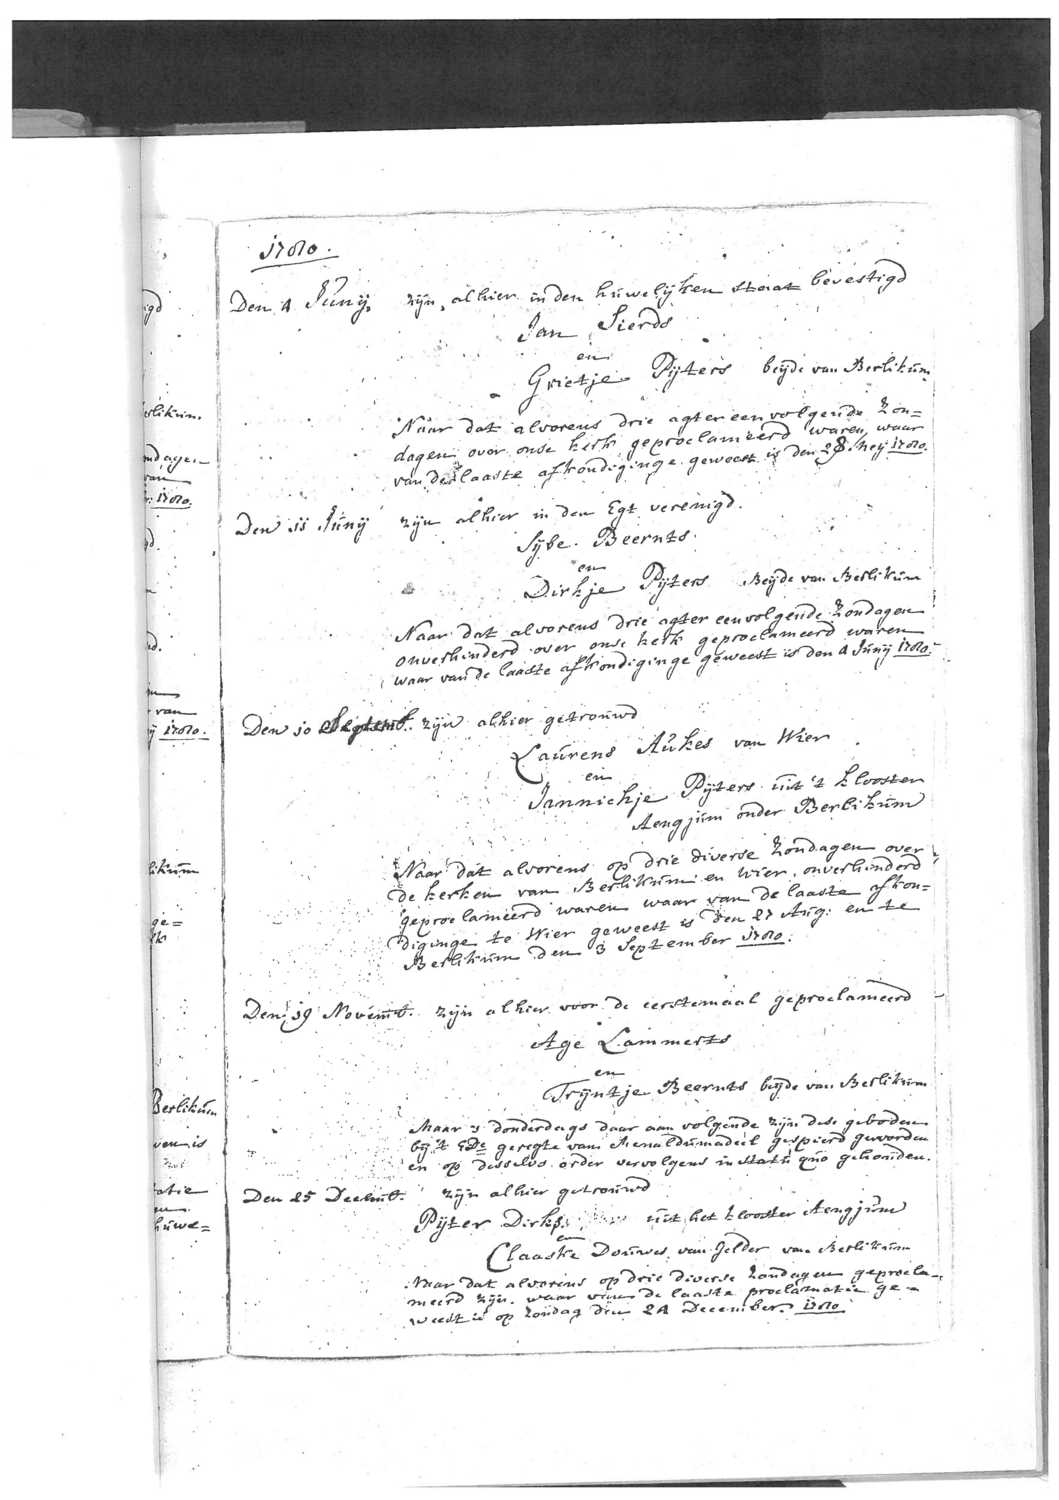 1780.
Den 4 Junij, zijn, alhier in den huwelijken staat bevestigd
Jan Sierds
en
Grietje Pijters beijde van Berlikum
Naar dat alvorens drie agter een volgende Zon=
dagen over onse kerk geproclameerd waren, waar
van de laaste afkondiginge geweest is den 28 Meij 1780.
Den 11 Junij zijn alhier in den Egt verenigd.
Sijbe Beernts
en
Dirkje Pijters Beijde van Berlikum
Naar dat alvorens drie agter eenvolgende Zondagen
onverhinderd over onse kerk geproclameerd waren
waar van de laaste afkondiginge geweest is den 4 Junij 1780.
Den 10 Septemb. zijn alhier getrouwd
Laurens Aukes van Wier
en
Jannichje Pijters uit 't klooster
Aengjum onder Berlikum
Naar dat alvorens op drie diverse Zondagen over
de kerken van Berlikum en Wier, onverhinderd
geproclameerd waren waar van de laaste afkon=
diginge te Wier geweest is den 27 Aug: en te
Berlikum den 3 September 1780.
Den 19 Novemb. zijn alhier voor de eerstemaal geproclameerd
Age Lammerts
en
Trijntje Beernts beijde van Berlikum
Maar 's donderdags daar aan volgende zijn dese geboden
bij 't EDe geregte van Menaldumadeel gespierd geworden
en op desselvs order vervolgens in statu quo gehouden.
Den 25 Decemb. zijn alhier getrouwd
Pijter Dirks uit het klooster Aengjum
en
Claaske Douwes van Gelder van Berlikum
Naar dat alvorens op drie diverse Zondagen geprocla=
meerd zijn. waar van de laaste proclamatie ge=
weest is op Zondag den 24 December 1780